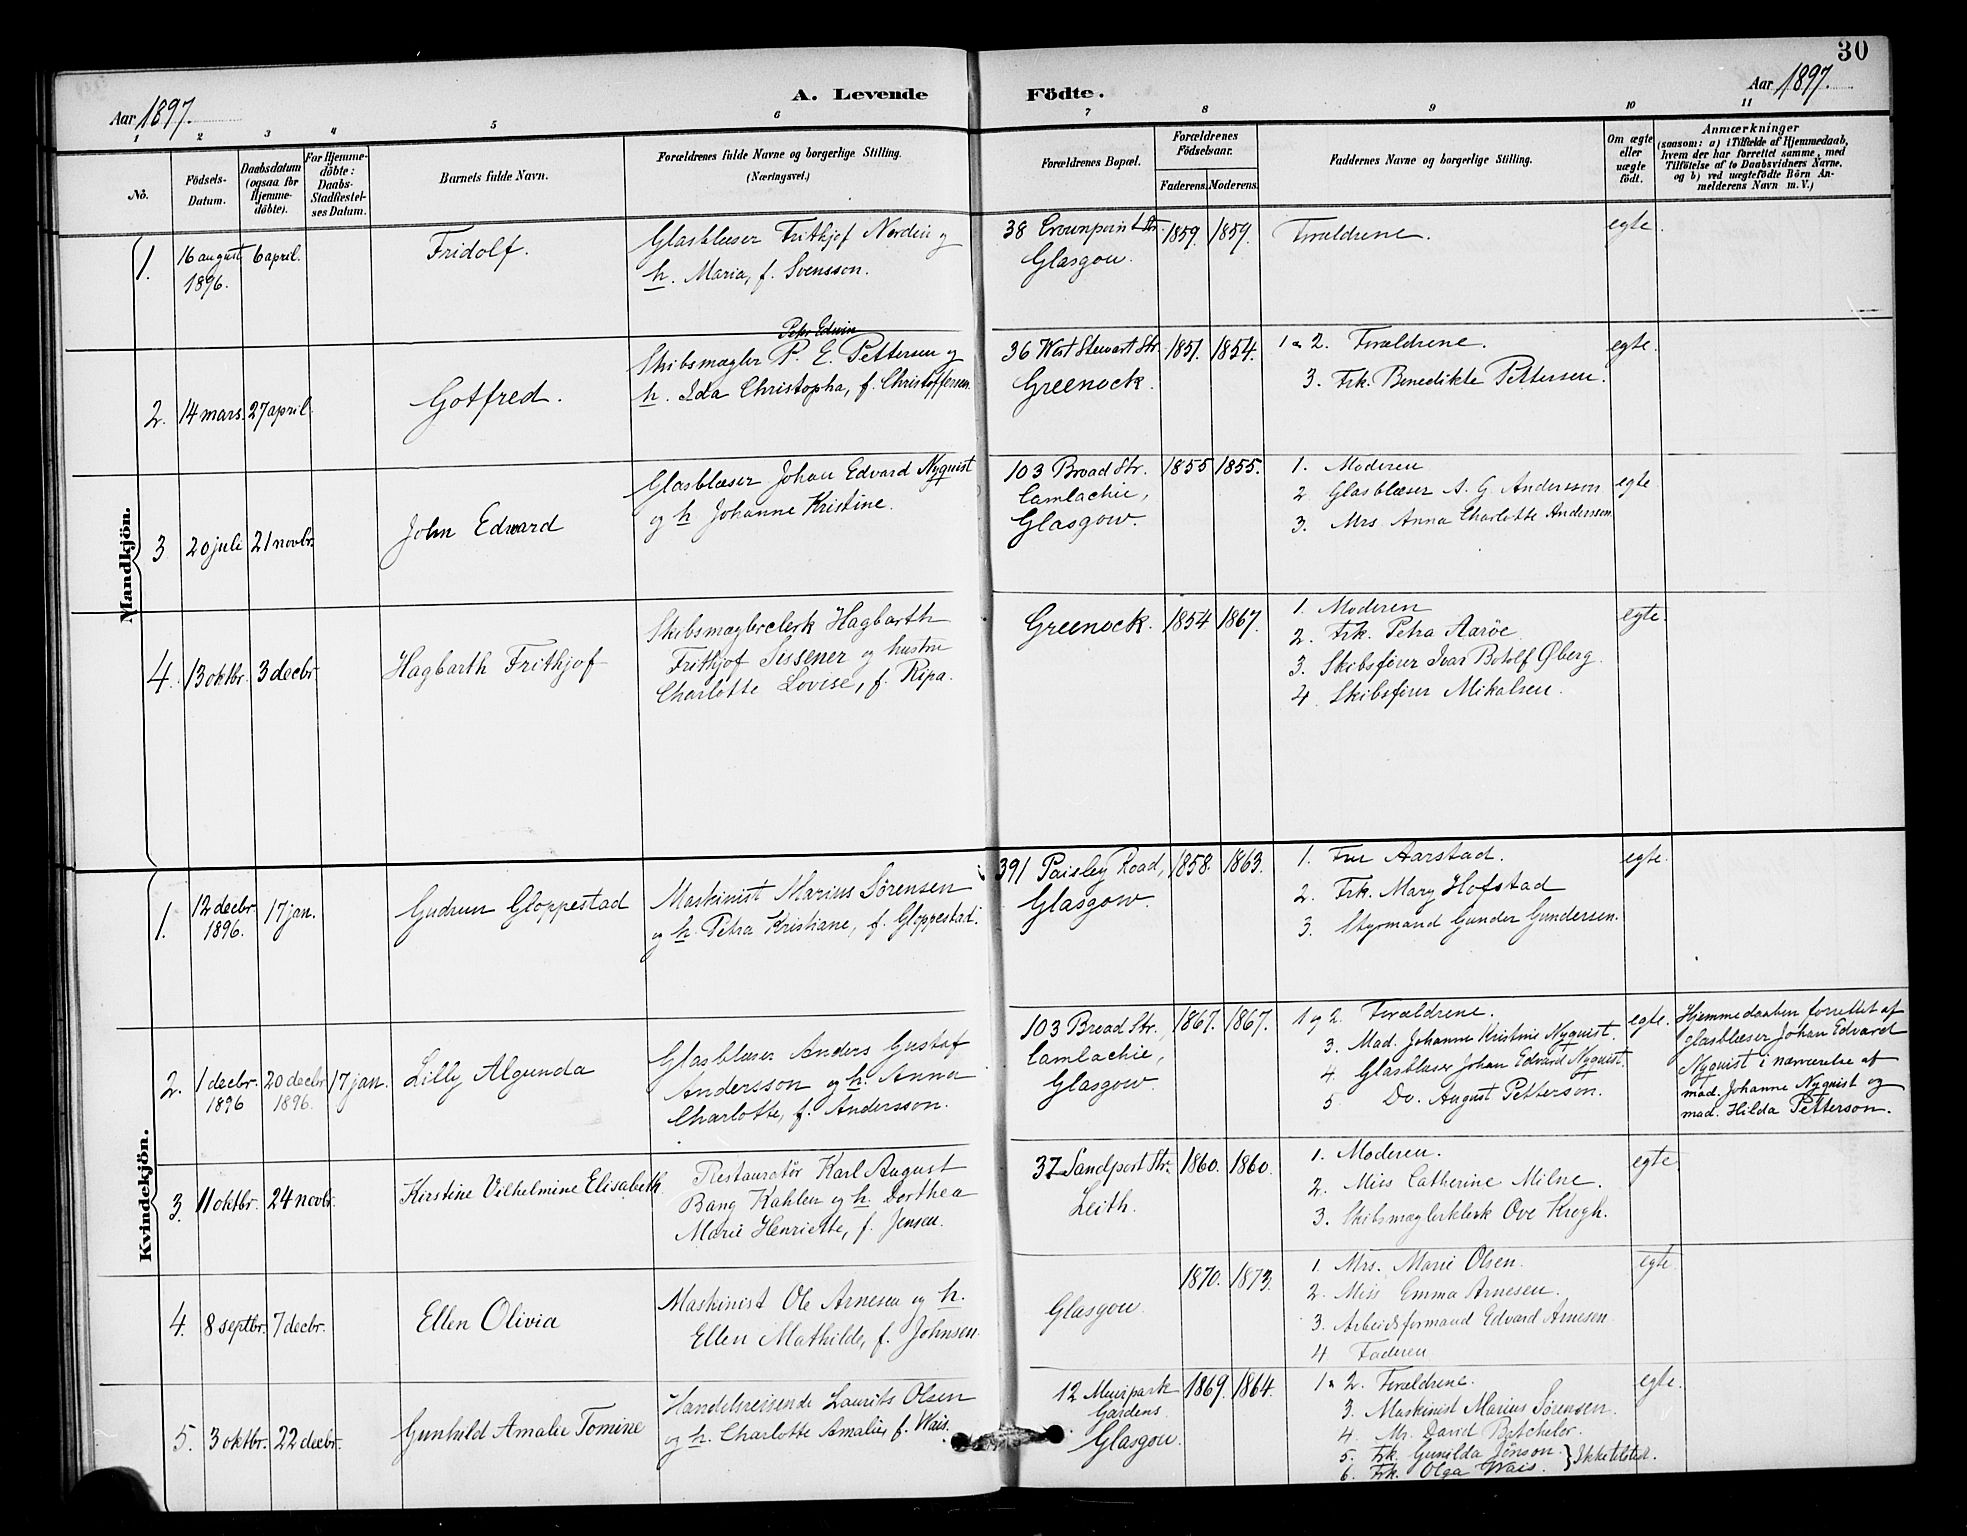 30
Aar 1897.
A. Levende Födte.
Aar 1897.
1 2 3 4 5 6 7 8 9 10 11
No.
Födsels-Datum.
Daabsdatum (ogsaa for Hjemme-döbte).
For Hjemme-döbte: Daabs-Stadfæstel-ses Datum.
Barnets fulde Navn.
Forældrenes fulde Navne og borgerlige Stilling.
(Næringsvei.)
Forældrenes Bopæl.
Forældrenes Födselsaar.
Faderens. Moderens.
Faddernes Navne og borgerlige Stilling.
Om ægte eller uægte födt.
Anmærkninger
(saasom: a) i Tilfælde af Hjemmedaab,
hvem der har forrettet samme, med
Tilföielse af to Daabsvidners Navne,
og b) ved uægtefödte Börn An-
melderens Navn m. V.)
Mandkjön.
1. 16 august 1896. 6 april.
Fridolf.
Glasblæser Frithjof Nordin og
h. Maria, f. Svensson.
38 Crownpoint Str.
Glasgow.
1859. 1859.
Forældrene.
egte.
2. 14 mars. 27 april.
Gotfred.
Peter Edwin
Skibsmægler P. E. Pettersen og
h. Ida Christopha, f. Christoffersen.
36 West Stewart Str.
Greenock.
1851. 1854.
1 & 2. Forældrene.
3. Frk. Benedikte Pettersen.
egte.
3 20 juli 21 novbr.
John Edward
Glasblæser Johan Edvard Nyquist
og h Johanne Kristine.
103 Broad Str.
Camlachie,
Glasgow.
1855 1855.
1. Moderen
2. Glasblæser A. G. Andersson
3. Mrs Anna Charlotte Andersson
egte
4. 13 oktbr. 3 decbr.
Hagbarth Frithjof
Skibsmæglerclerk Hagbarth
Frithjof Sissener og hustru
Charlotte Lovise, f. Ripa.
Greenock.
1854 1867.
1. Moderen
2. Frk. Petra Aarøe
3. Skibsfører Ivar Botolf Øberg.
4. Skibsfører Mikalsen.
egte.
Kvindekjön.
1. 12 decbr. 1896. 17 jan.
Gudrun Gloppestad
Maskinist Marius Sørensen
og h. Petra Kristiane, f. Gloppestad.
391 Paisley Road,
Glasgow.
1858. 1863.
1. Fru Aarstad.
2. Frk. Mary Hofstad
3. Styrmand Gunder Gundersen.
egte.
2. 1 decbr. 1896 20 decbr 1896. 17 jan.
Lilly Algunda
Glasblæser Anders Gustaf
Andersson og h. Anna
Charlotte, f. Andersson.
103 Broad Str.,
Camlachie,
Glasgow.
1867. 1867.
1 og 2. Forældrene.
3. Mad. Johanne Kristine Nyquist.
4. Glasblæser Johan Edvard Nyquist.
5. Do. August Petterson.
egte.
Hjemmedaaben forrettet af
Glasblæser Johan Edvard
Nyquist i nærværelse af
mad. Johanne Nyquist og
mad. Hilda Petterson.
3. 11 oktbr. 24 novbr.
Kirstine Vilhelmine Elisabeth.
Restauratør Karl August
Bang Kahlen og h. Dorthea
Marie Henriette, f. Jensen.
37 Sandport Str.
Leith.
1860. 1860.
1. Moderen.
2. Miss Catherine Milne.
3. Skibsmæglerklerk Ove Krogh.
egte.
4. 8 septbr. 7 decbr.
Ellen Olivia
Maskinist Ole Arnesen og h.
Ellen Mathilde, f. Johnsen.
Glasgow.
1870. 1873.
1. Mrs. Marie Olsen.
2. Miss Emma Arnesen.
3. Arbeidsformand Edvard Arnesen
4 Faderen
egte.
5. 3 oktbr. 22 decbr.
Gunhild Amalie Tomine
Handelsreisende Laurits Olsen
og h. Charlotte Amalie, f. Wais.
12 Muirpark
Gardens
Glasgow.
1869. 1864.
1 & 2. Forældrene.
3. Maskinist Marius Sørensen.
4. Mr. David Batchelor.
5. Frk. Gunilda Jönson.
6. Frk. Olga Wais. } Ikke tilsted.
egte.